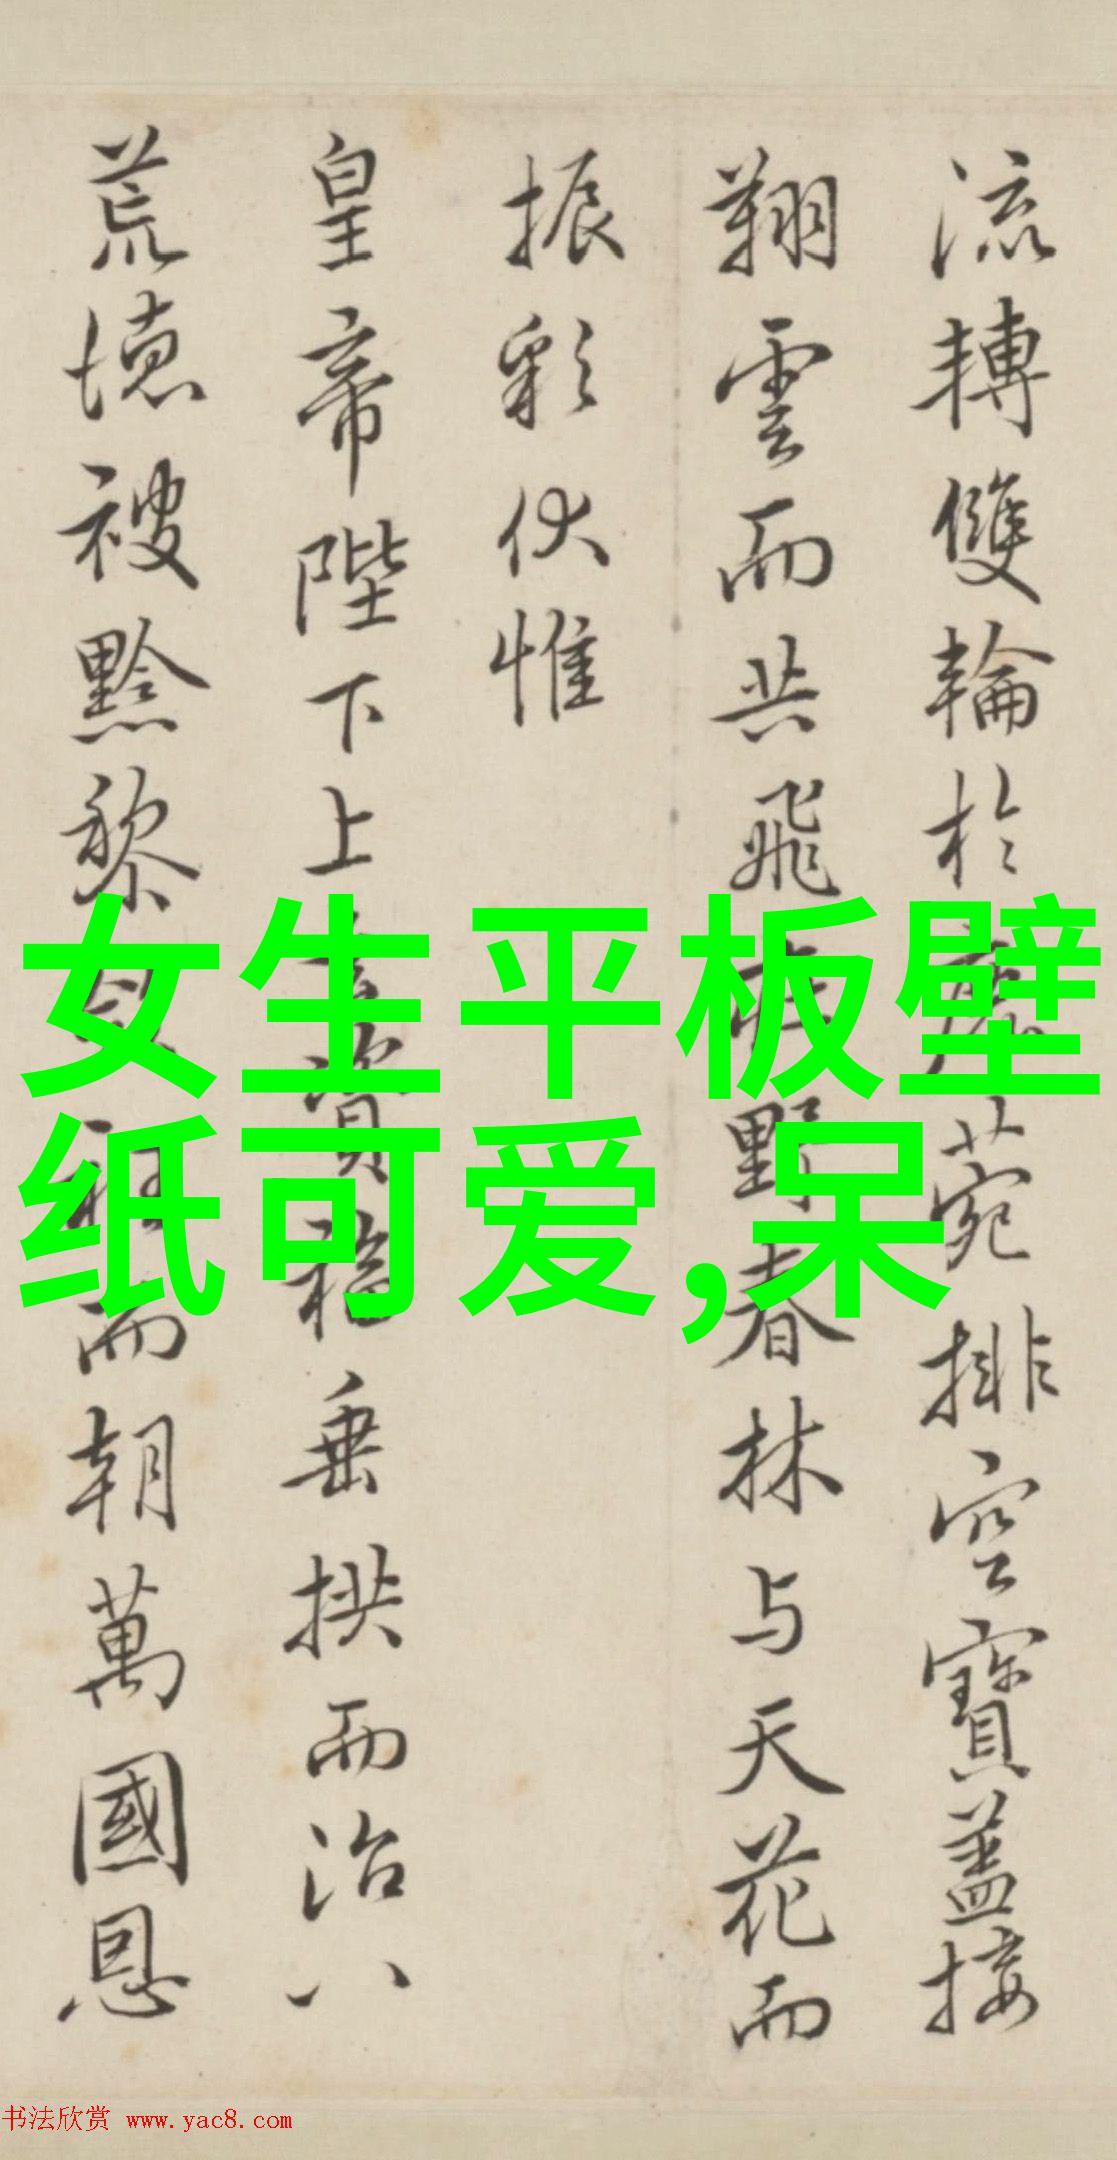 流轉雙輪於鹿菀排空寶蓋接
翔雲而共飛莊野春林与天花而
振彩伏惟
皇帝陛下上玄資福垂拱而治八
荒德被黔黎斂衽而朝萬國恩
女生平板壁
纸可爱,呆
书法欣赏 www.yac8.com